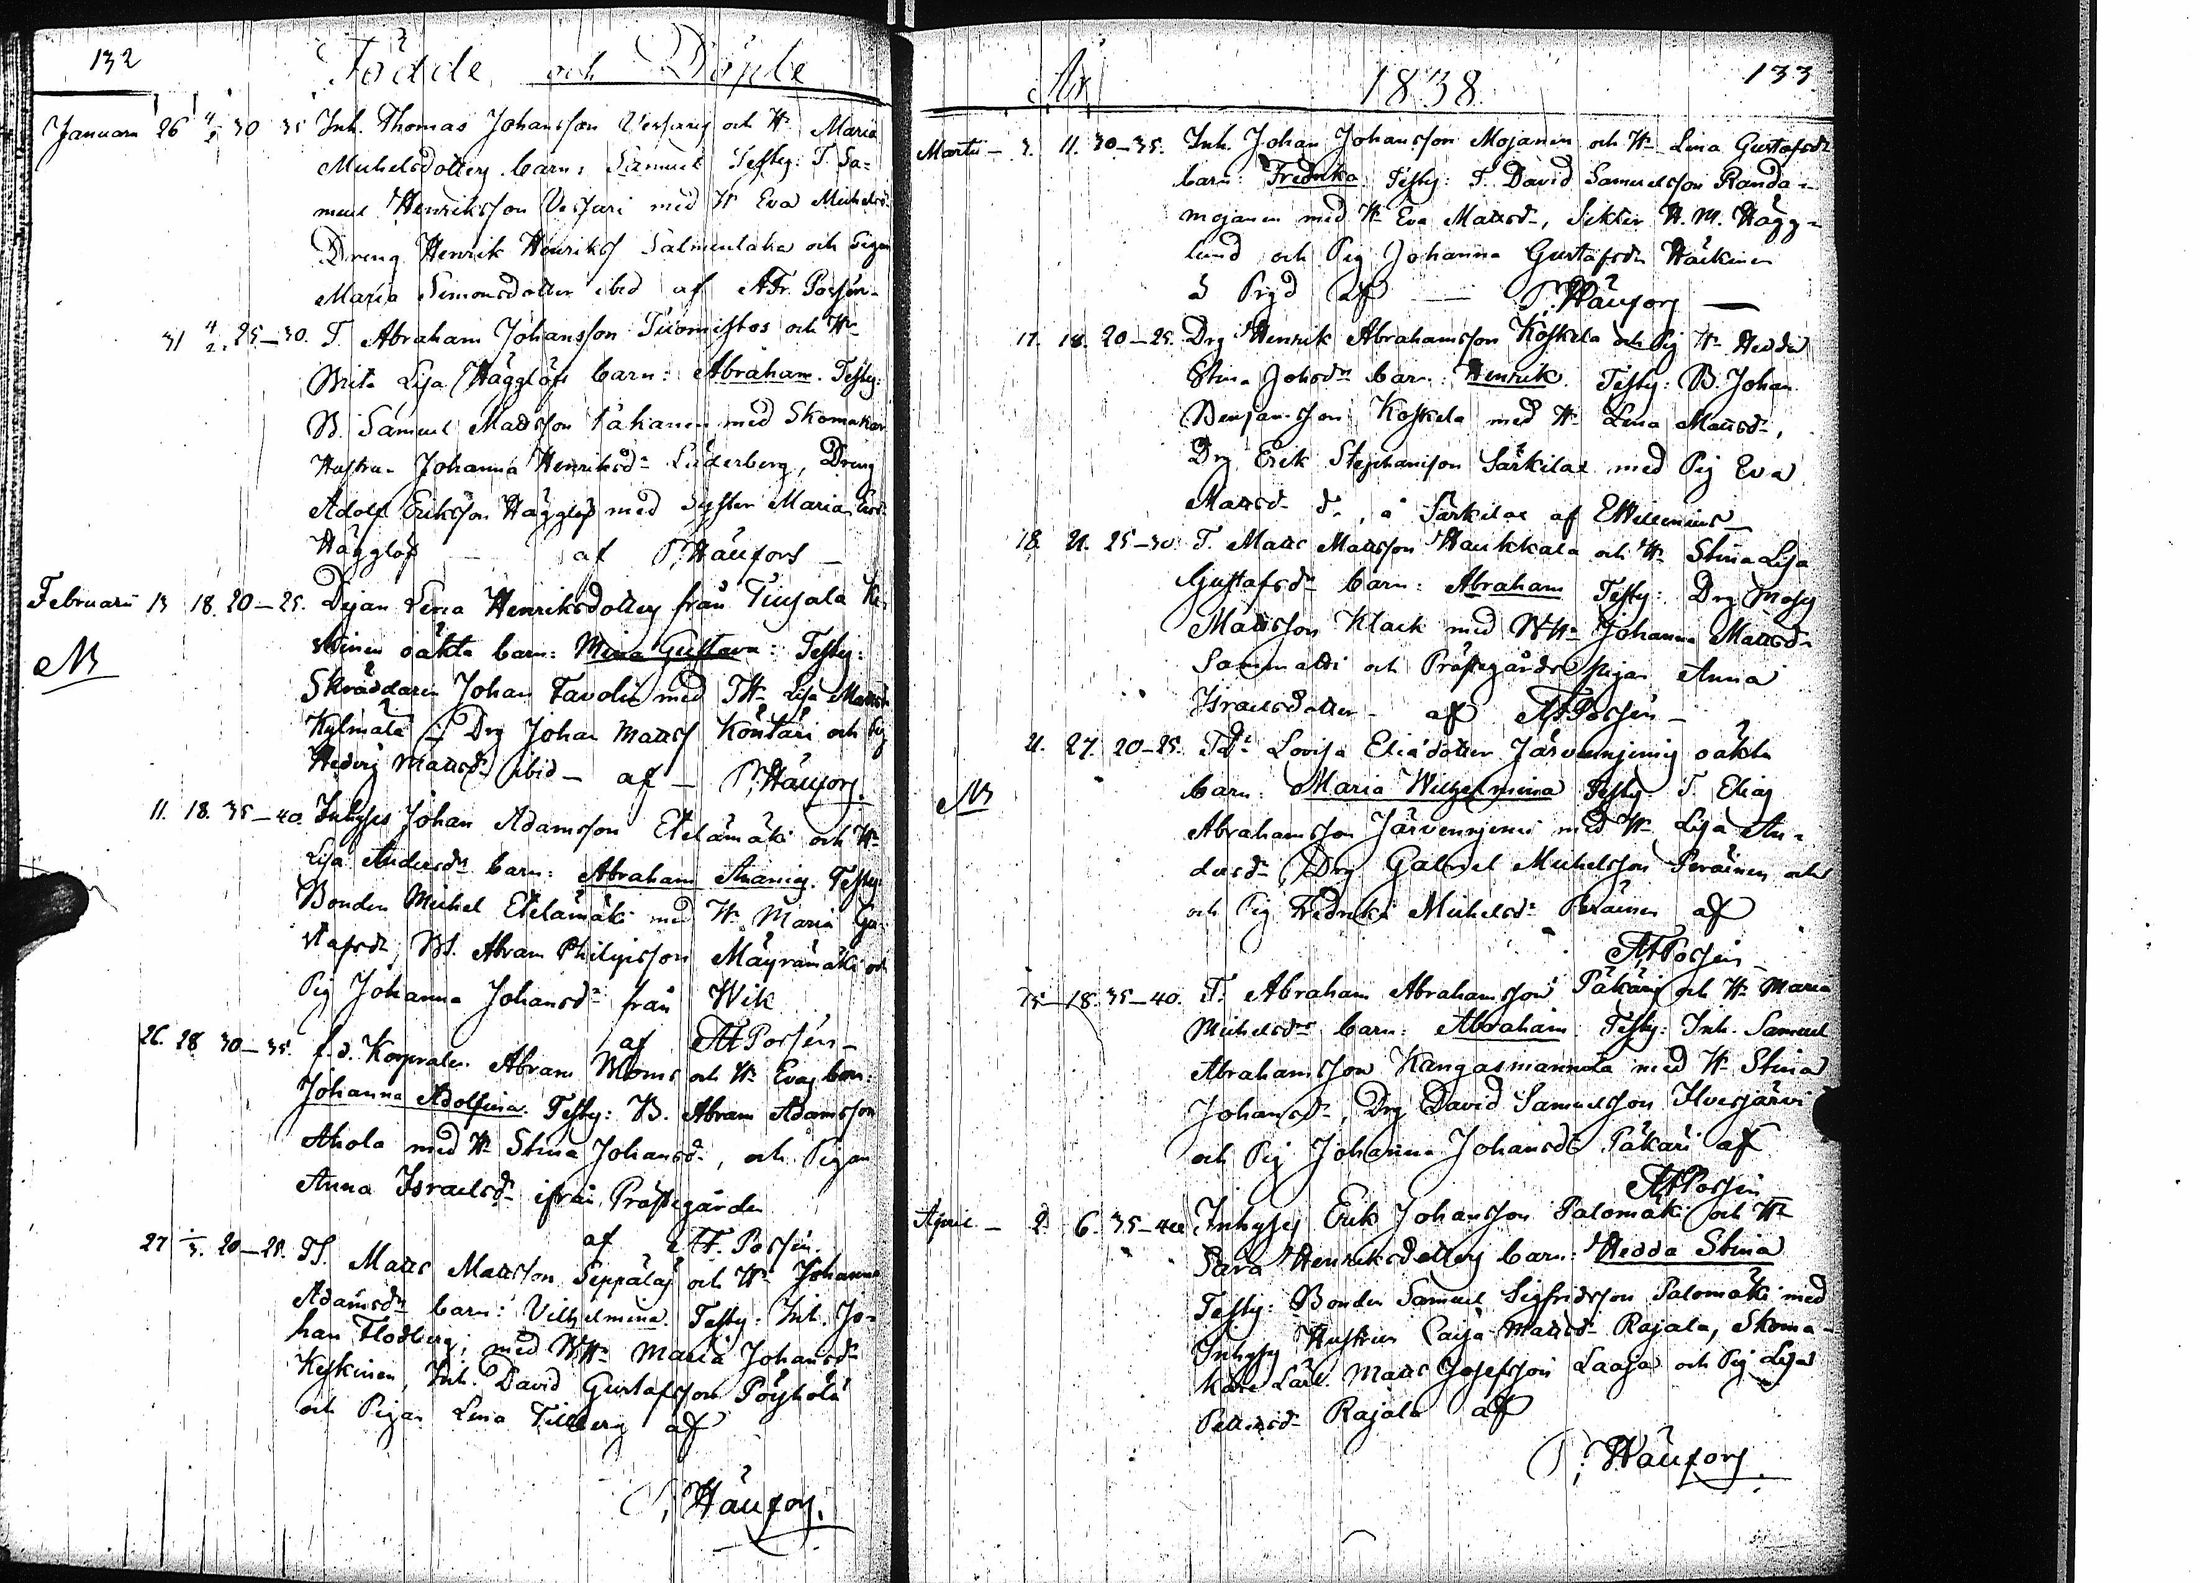 132
Födde och Döpte
Januarii 26 4/2 30 35 Inh. Thomas Johansson Vessari och H. Maria
Michelsdotters barn: Samuel Testes: T. Sa=
muel Henriksson Vessari med H. Eva Michelsd.
Dreng Henrik Henrikss Salmenlaka och Pigan
Maria Simonsdotter ibid af AFr. Possén
31 4/2. 25–30. T. Abraham Johansson Tuomistos och H.
Brita Lisa Hägglöfs barn: Abraham. Testes:
B. Samuel Mattsson med Skomakar
Hustrun Johanna Henriksdr Söderberg, Dreng
Adolf Eriksson Hägglöf med Syster Maria
Hägglöf – af P. Häufors –
Februarii 13 18. 20–25. Dejan Lena Henriksdotters från Tiusala
NB
oäkta barn: Mina Gustava: Testes:
Skräddaren Johan Favolin med TH. Lisa Mattsd
Kylmälä Drg Johan Matts Köntäri och Pig
Hedvig Mattsd ibid – af – P. Häufors.
11. 18. 35–40. Inhyses Johan Adamsson Etelämäki och H.
Lisa Andersdr barn: Abraham Ananias. Testes:
Bonden Michel Etelämäki med H. Maria Gu=
stafsdr, BS. Abram Philipsson Mäyrämäki och
Pig Johanna Johansdr från Wik
af AF Possén –
26. 28 30–35. f.d. Korpralen Abram Bloms och H. Evas barn:
Johanna Adolfina. Testes: B. Abram Adamsson
Ahola med H. Stina Johansdr, och Pigan
Anna Israelsdr ifrån Prästegården
af AF. Possén.
27 1/3. 20–25. TS. Matts Mattsson Seppäläs och H. Johanna
Adamsdrs barn: Vilhelmina. Testes: Inh. Jo=
han Flodberg, med BH. Maria Johansdr
Keskinen, Inh. David Gustafsson Pöyhölä
och Pigan Lena Tillberg af
P. Häufors.
År 1838. 133.
Martii – 3. 11. 30–35. Inh. Johan Johansson Mojanen och H. Lina Gustafsdr
barn: Fredrika. Testes: T. David Samuelsson Randa=
mojanen med H. Eva Mattsdr, Sekter H. M. Hägg=
lund och Pig Johanna Gustafsdr Häkkinen
af — P. Häufors —
17. 18. 20–25. Drg Henrik Abrahamsson Koskela och Pig H. Hedda
Stina Johsdrs barn: Henrik. Testes: B. Johan
Benjamsson Koskela med H. Lena Mattsdr,
Drg Erik Stephansson Särkilax med Pig Eva
Mattsdr dr, å Särkilax af EWillenius
18. 21. 25–30. T. Matts Mattsson Haukkala och H. Stina Lisa
Gustafsdr barn: Abraham Testes: Drg Moses
Mattsson Klack med BH. Johanna Mattsdr
Sammaldi och Prästegårds Pigan Anna
Israelsdotter – af AF Possén –
21. 27. 20–25. TDr Lovisa Eliædotter Järvenpenis oäkta
NB
barn: Maria Wilhelmina Testes: T. Elias
Abrahamsson Järvenpeni med H. Lisa An=
dersdr, Drg Gabriel Michelsson Peräinen och
och Pig Fredrika Michelsdr Peräinen af
AF Possén –
15–18. 35–40. T. Abraham Abrahamsson Päkäris och H. Maria
Michelsdrs barn: Abraham. Testes: Inh. Samuel
Abrahamsson Kangasmannila med H. Stina
Johansdr, Drg David Samuelsson Ilvesjärvi
och Pig Johanna Johansdr Päkäri af
AF Possén
April – 2. 6. 35–40 Inhyses Erik Johansson Palomäki och H.
Sara Henriksdotters barn: Hedda Stina
Testes: Bonden Samuel Sigfridsson Palomäki med
Inhyses Hustrun Caisa Mattsd Rajala, Skoma=
kare Lärl. Matts Josefsson Laasa och Pig Lisa
Pettersdr Rajala af
P. Häufors.